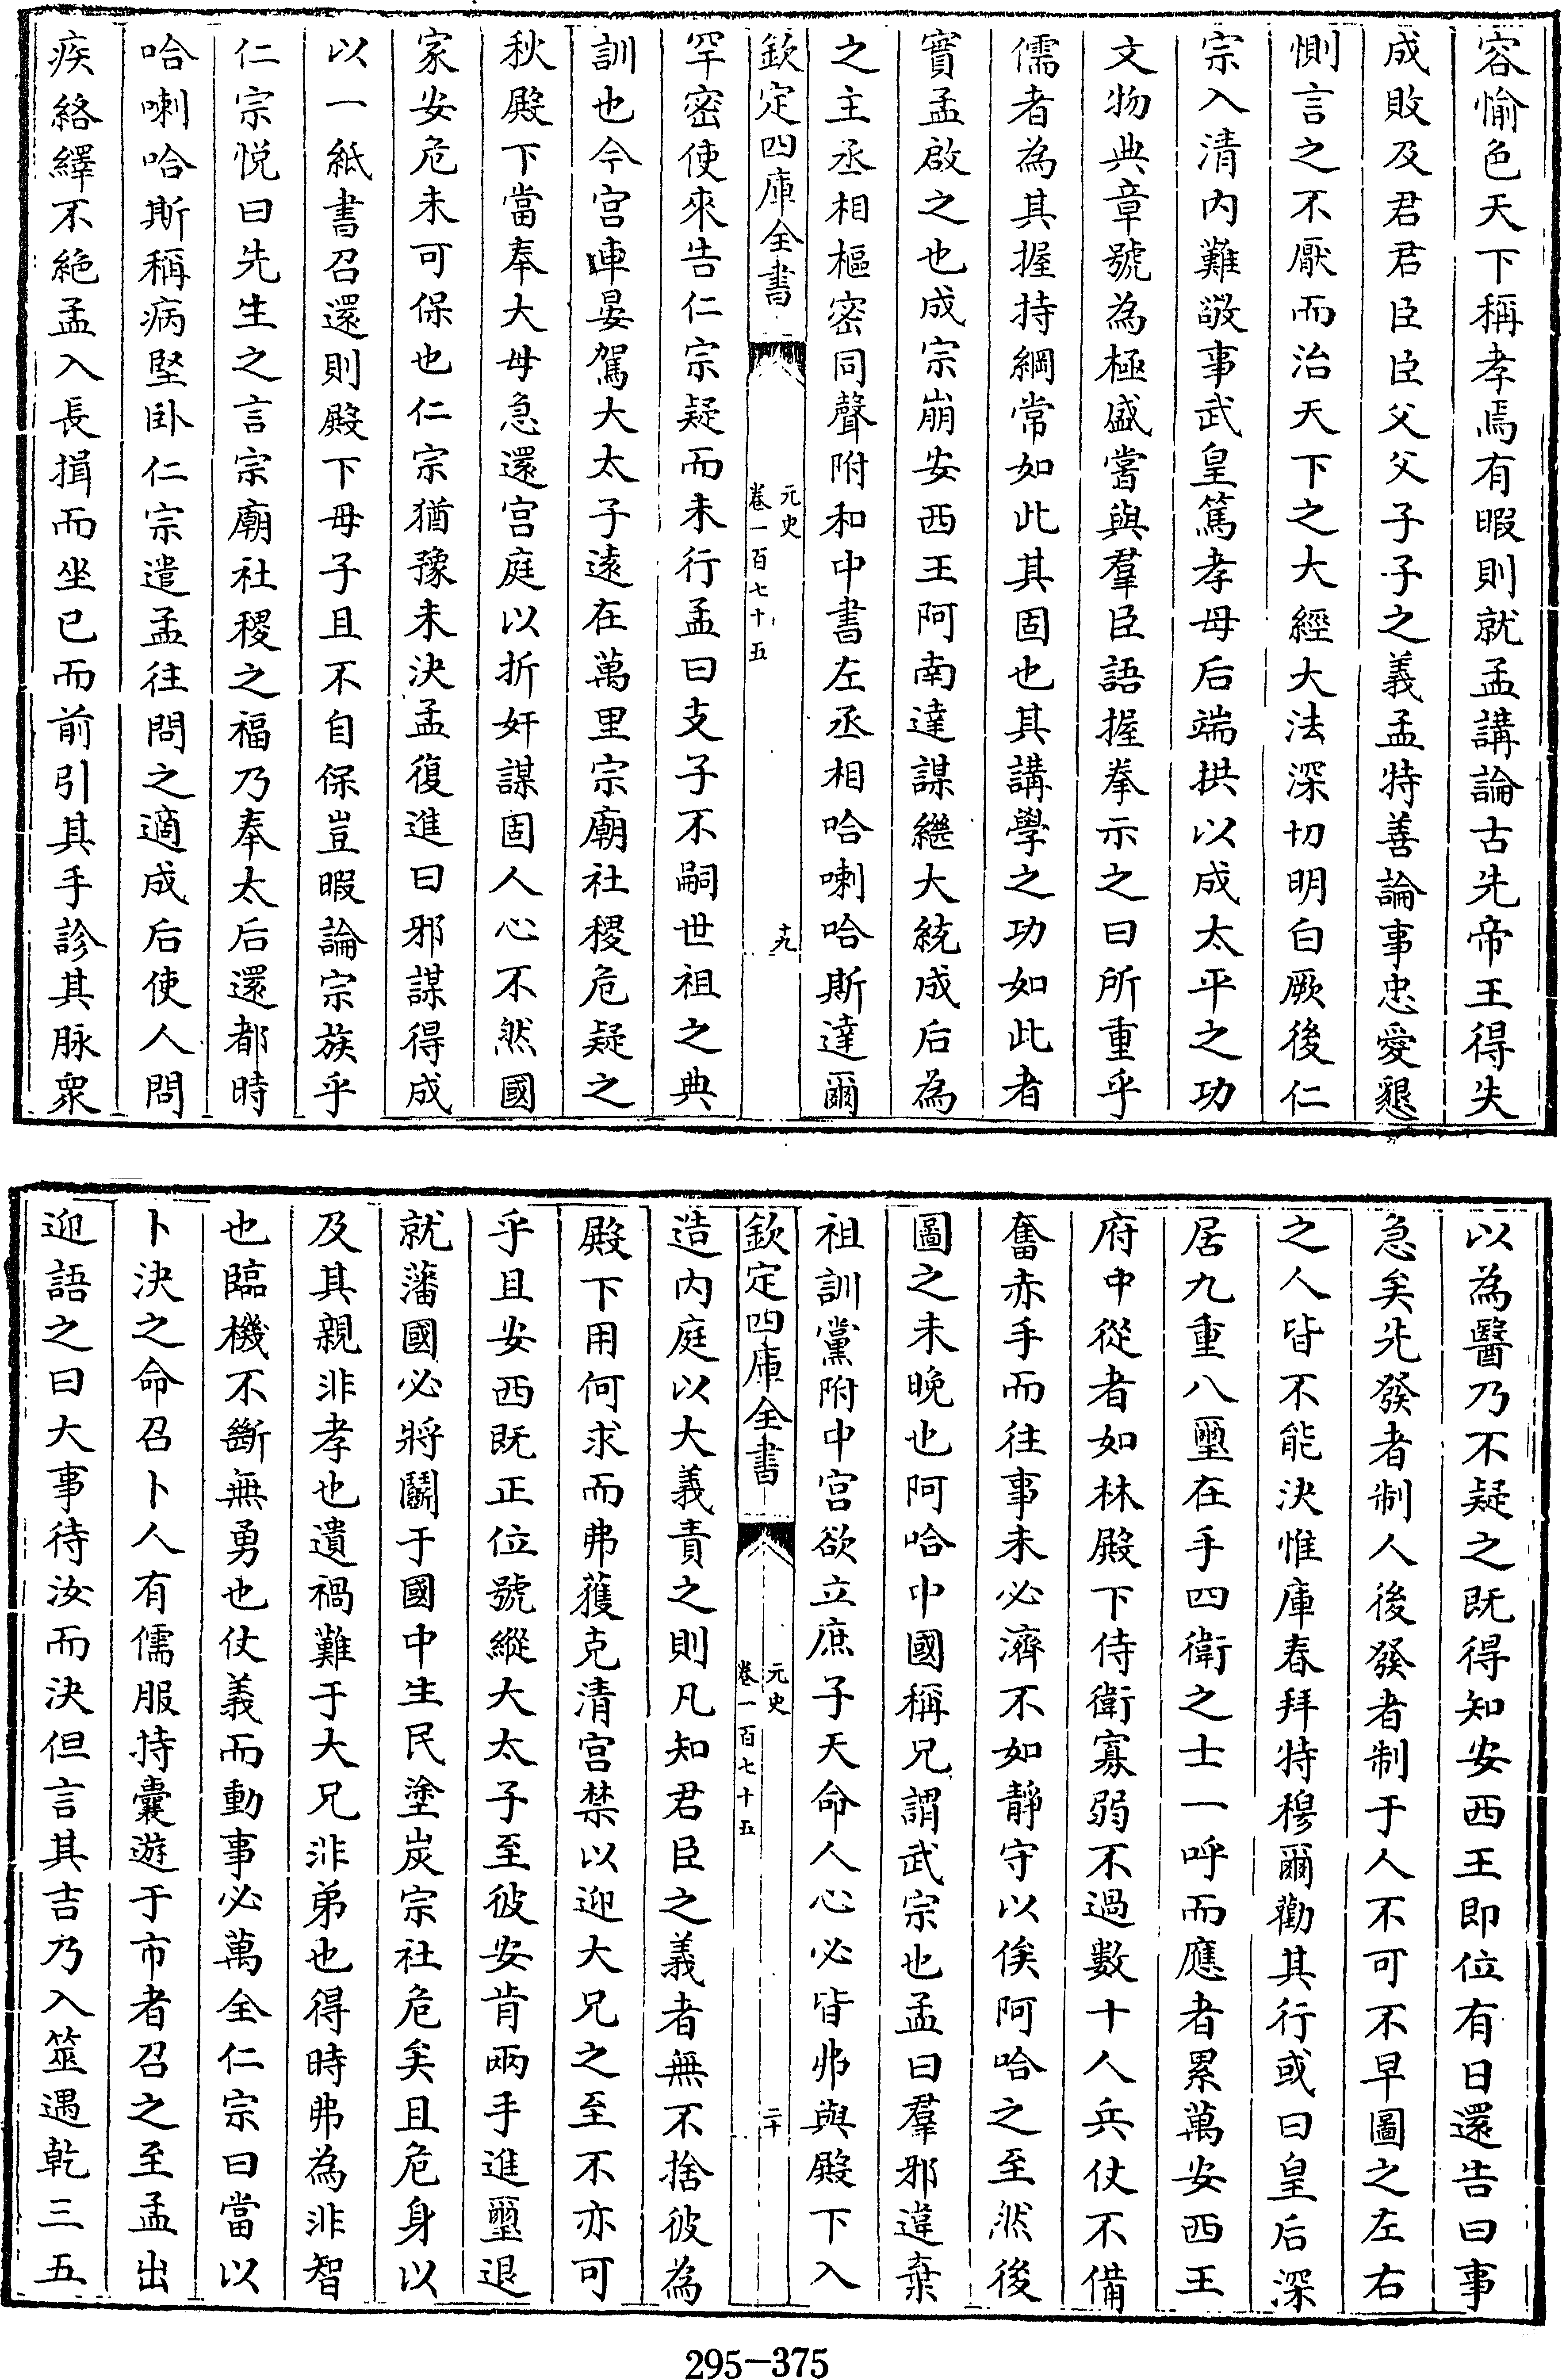 容愉色天下稱孝焉有暇則就孟講論古先帝王得失
成敗及君君臣臣父父子子之義孟特善論事忠愛懇
惻言之不厭而治天下之大經大法深切明白厥後仁
宗入清内難敬事武皇篤孝母后端拱以成太平之功
文物典章號為極盛嘗與羣臣語握拳示之曰所重乎
儒者為其握持綱常如此其固也其講學之功如此者
實孟啟之也成宗崩安西王阿南達謀繼大統成后為
之主丞相樞密同聲附和中書左丞相哈喇哈斯達爾
欽定四庫全書
元史
卷一百七十五
十九
罕密使來告仁宗疑而未行孟曰支子不嗣世祖之典
訓也今宫車晏駕大太子遠在萬里宗廟社稷危疑之
秋殿下當奉大母急還宫庭以折奸謀固人心不然國
家安危未可保也仁宗猶豫未決孟復進曰邪謀得成
以一紙書召還則殿下母子且不自保豈暇論宗族乎
仁宗悦曰先生之言宗廟社稷之福乃奉太后還都時
哈喇哈斯稱病堅卧仁宗遣孟往問之適成后使人問
疾絡繹不絶孟入長揖而坐已而前引其手診其脉衆
以為醫乃不疑之既得知安西王即位有日還告曰事
急矣先發者制人後發者制于人不可不早圖之左右
之人皆不能決惟庫春拜特穆爾勸其行或曰皇后深
居九重八璽在手四衛之士一呼而應者累萬安西王
府中從者如林殿下侍衛寡弱不過數十人兵仗不備
奮赤手而往事未必濟不如靜守以俟阿哈之至然後
圖之未晚也阿哈中國稱兄謂武宗也孟曰羣邪違棄
祖訓黨附中宫欲立庶子天命人心必皆弗與殿下入
欽定四庫全書
元史
卷一百七十五
二十
造内庭以大義責之則凡知君臣之義者無不捨彼為
殿下用何求而弗獲克清宫禁以迎大兄之至不亦可
乎且安西既正位號縱大太子至彼安肯兩手進璽退
就藩國必將鬭于國中生民塗炭宗社危矣且危身以
及其親非孝也遺禍難于大兄非弟也得時弗為非智
也臨機不斷無勇也仗義而動事必萬全仁宗曰當以
卜決之命召卜人有儒服持囊遊于市者召之至孟出
迎語之曰大事待汝而決但言其吉乃入筮遇乾三五
295-375